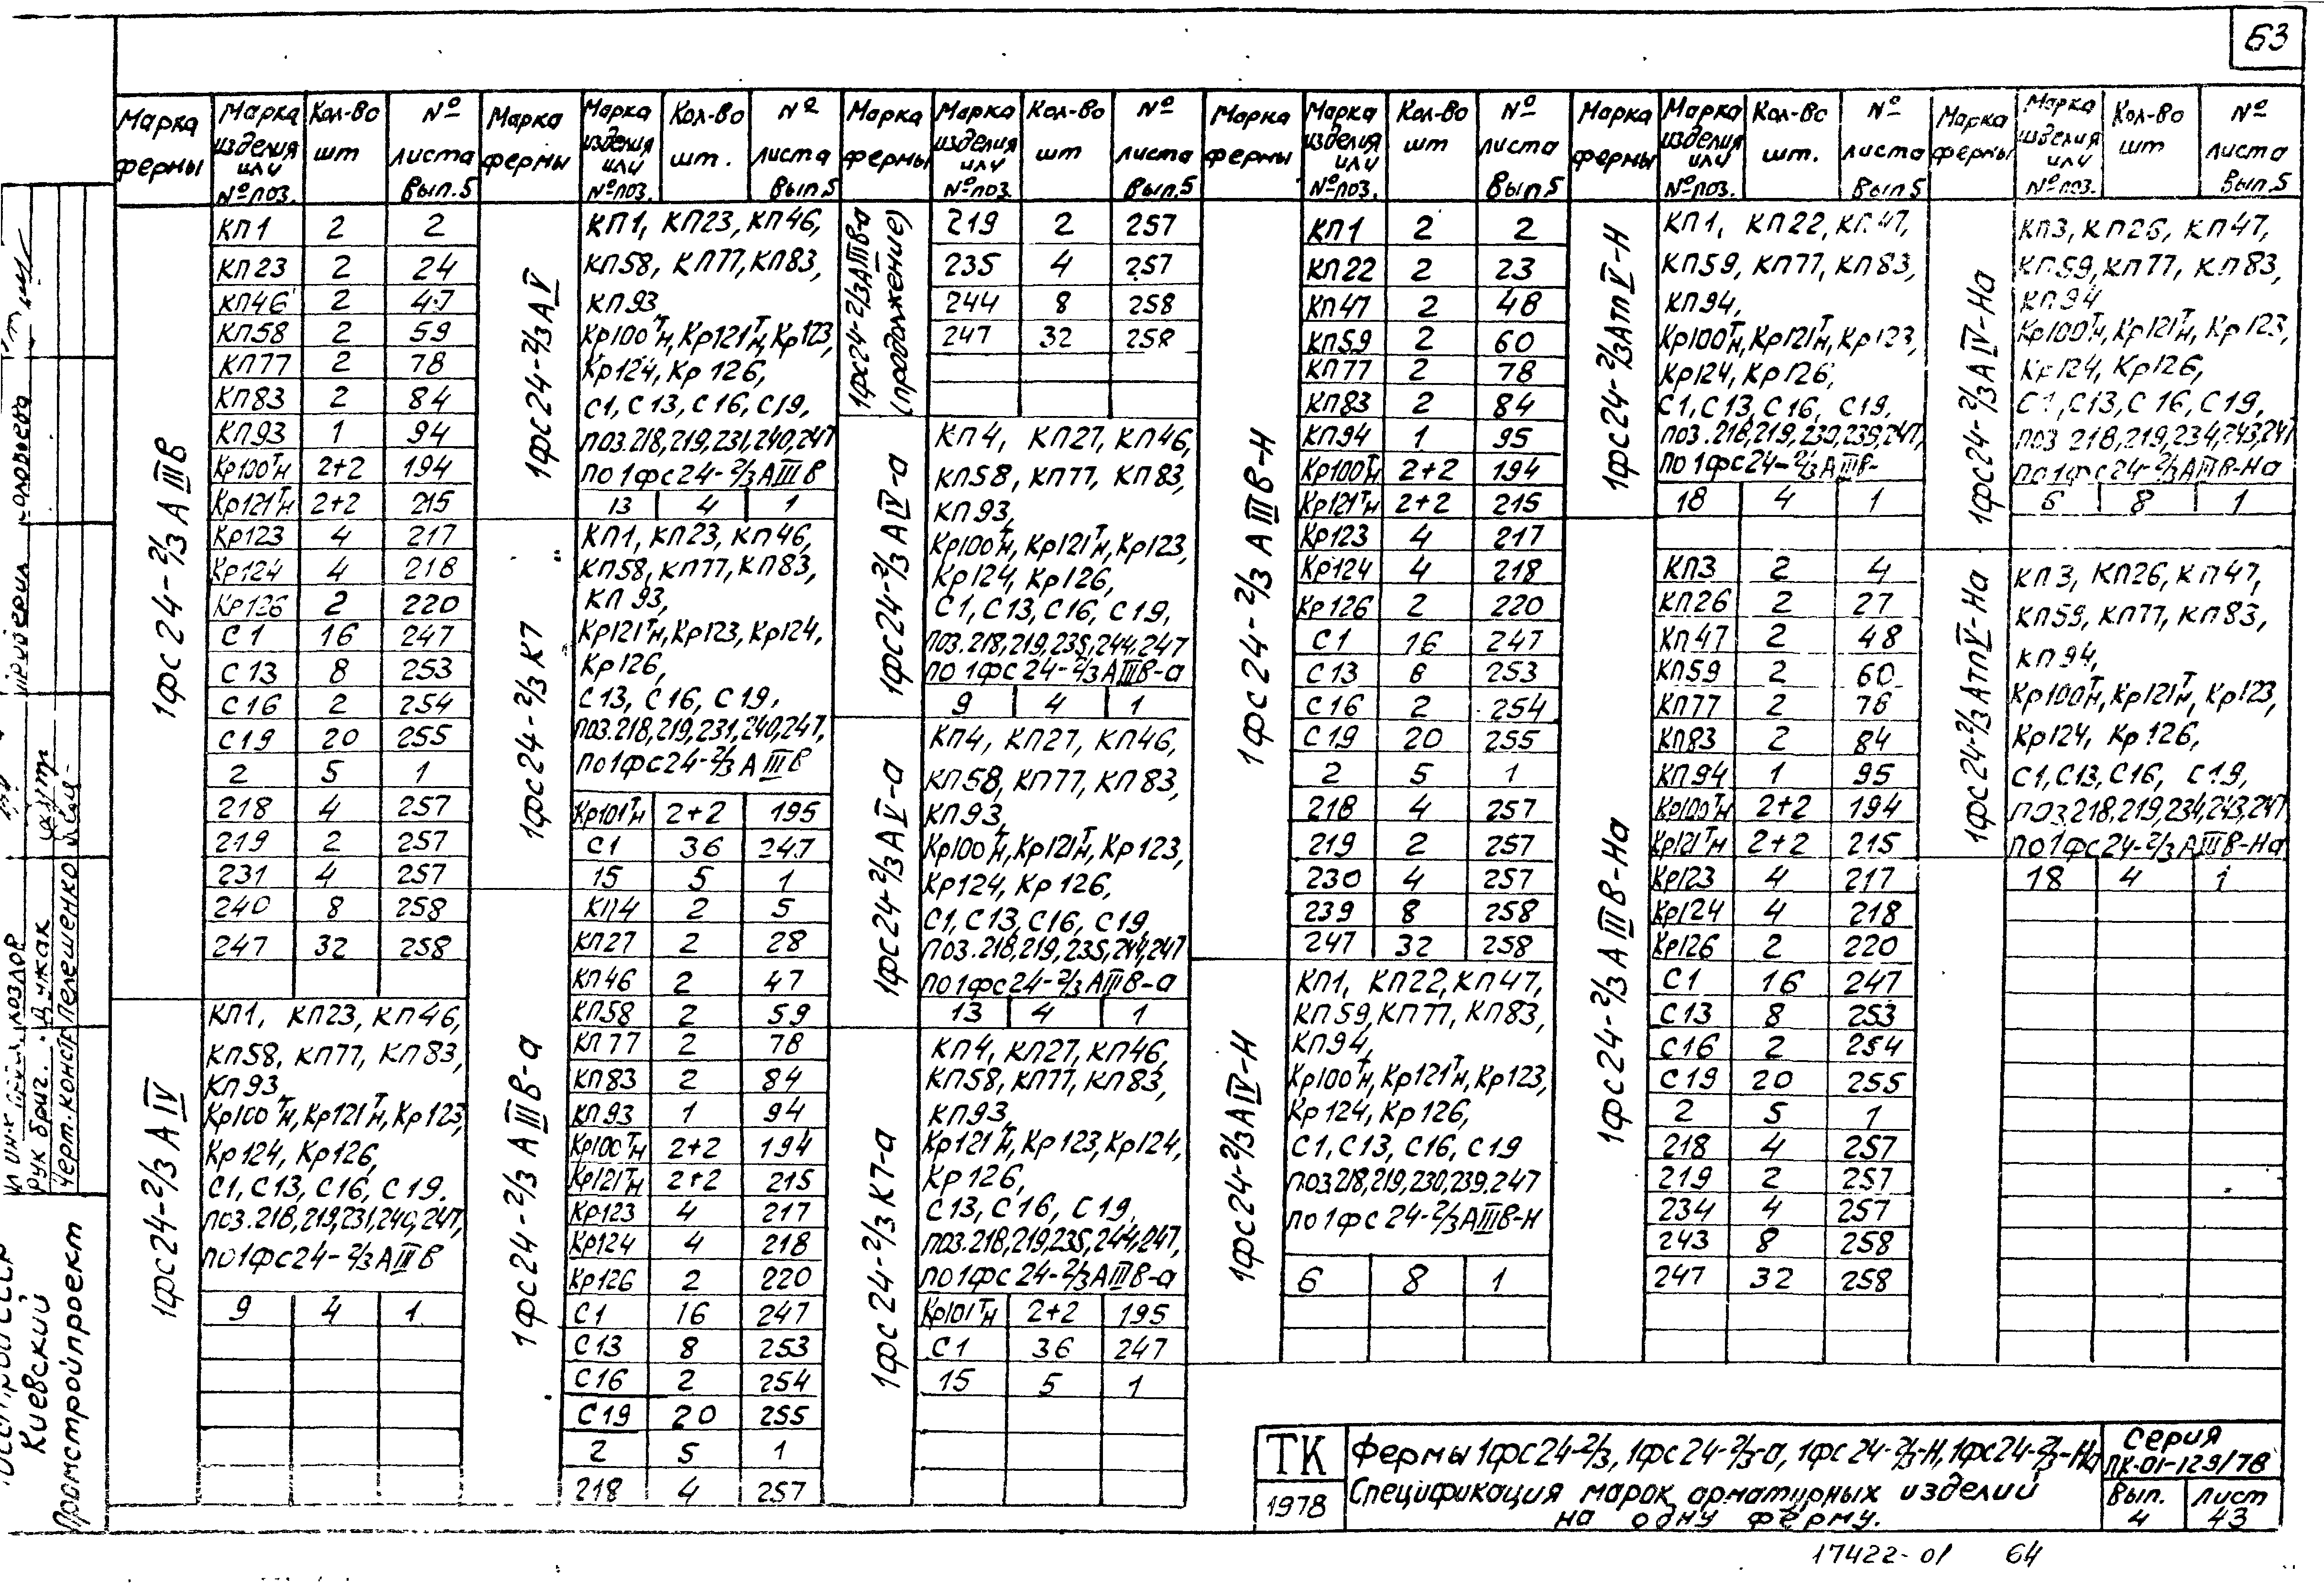 63
Марка фермы | Марка изделия или № поз. | Кол-во шт | № листа Вып.5
1фс24-2/3АIIIв
КП1 2 2
КП23 2 24
КП46 2 47
КП58 2 59
КП77 2 78
КП83 2 84
КП93 1 94
Кр100ᵀн 2+2 194
Кр121ᵀн 2+2 215
Кр123 4 217
Кр124 4 218
Кр126 2 220
С1 16 247
С13 8 253
С16 2 254
С19 20 255
2 5 1
218 4 257
219 2 257
231 4 257
240 8 258
247 32 258
1фс24-2/3АIV
КП1, КП23, КП46,
КП58, КП77, КП83,
КП93,
Кр100ᵀн, Кр121ᵀн, Кр123,
Кр124, Кр126,
С1, С13, С16, С19.
поз.218,219,231,240,247,
по 1фс24-2/3АIIIв
9 4 1
Марка фермы | Марка изделия или № поз. | Кол-во шт. | № листа Вып.5
1фс24-2/3АV
КП1, КП23, КП46,
КП58, КП77, КП83,
КП93
Кр100ᵀн, Кр121ᵀн, Кр123,
Кр124, Кр126,
С1, С13, С16, С19,
поз.218,219,231,240,247
по 1фс24-2/3АIIIв
13 4 1
1фс24-2/3К7
КП1, КП23, КП46,
КП58, КП77, КП83,
КП93,
Кр121ᵀн, Кр123, Кр124,
Кр126,
С13, С16, С19,
поз.218,219,231,240,247,
по 1фс24-2/3АIIIв
Кр101ᵀн 2+2 195
С1 36 247
15 5 1
1фс24-2/3АIIIв-а
КП4 2 5
КП27 2 28
КП46 2 47
КП58 2 59
КП77 2 78
КП83 2 84
КП93 1 94
Кр100ᵀн 2+2 194
Кр121ᵀн 2+2 215
Кр123 4 217
Кр124 4 218
Кр126 2 220
С1 16 247
С13 8 253
С16 2 254
С19 20 255
2 5 1
218 4 257
Марка фермы | Марка изделия или № поз. | Кол-во шт | № листа Вып.5
1фс24-2/3АIIIв-а (продолжение)
219 2 257
235 4 257
244 8 258
247 32 258
1фс24-2/3АIV-а
КП4, КП27, КП46,
КП58, КП77, КП83,
КП93,
Кр100ᵀн, Кр121ᵀн, Кр123,
Кр124, Кр126,
С1, С13, С16, С19,
поз.218,219,235,244,247
по 1фс24-2/3АIIIв-а
9 4 1
1фс24-2/3АV-а
КП4, КП27, КП46,
КП58, КП77, КП83,
КП93,
Кр100ᵀн, Кр121ᵀн, Кр123,
Кр124, Кр126,
С1, С13, С16, С19,
поз.218,219,235,244,247
по 1фс24-2/3АIIIв-а
13 4 1
1фс24-2/3К7-а
КП4, КП27, КП46,
КП58, КП77, КП83,
КП93,
Кр121ᵀн, Кр123, Кр124,
Кр126,
С13, С16, С19,
поз.218,219,235,244,247,
по 1фс24-2/3АIIIв-а
Кр101ᵀн 2+2 195
С1 36 247
15 5 1
Марка фермы | Марка изделия или № поз. | Кол-во шт | № листа Вып5
1фс24-2/3АIIIв-Н
КП1 2 2
КП22 2 23
КП47 2 48
КП59 2 60
КП77 2 78
КП83 2 84
КП94 1 95
Кр100ᵀн 2+2 194
Кр121ᵀн 2+2 215
Кр123 4 217
Кр124 4 218
Кр126 2 220
С1 16 247
С13 8 253
С16 2 254
С19 20 255
2 5 1
218 4 257
219 2 257
230 4 257
239 8 258
247 32 258
1фс24-2/3АIV-Н
КП1, КП22, КП47,
КП59, КП77, КП83,
КП94,
Кр100ᵀн, Кр121ᵀн, Кр123,
Кр124, Кр126,
С1, С13, С16, С19
поз.218,219,230,239,247
по 1фс24-2/3АIIIв-Н
6 8 1
Марка фермы | Марка изделия или № поз. | Кол-во шт. | № листа Вып5
1фс24-2/3АтпV-Н
КП1, КП22, КП47,
КП59, КП77, КП83,
КП94,
Кр100ᵀн, Кр121ᵀн, Кр123,
Кр124, Кр126,
С1, С13, С16, С19.
поз.218,219,230,239,247,
по 1фс24-2/3АIIIв-
18 4 1
1фс24-2/3АIIIв-На
КП3 2 4
КП26 2 27
КП47 2 48
КП59 2 60
КП77 2 78
КП83 2 84
КП94 1 95
Кр100ᵀн 2+2 194
Кр121ᵀн 2+2 215
Кр123 4 217
Кр124 4 218
Кр126 2 220
С1 16 247
С13 8 253
С16 2 254
С19 20 255
2 5 1
218 4 257
219 2 257
234 4 257
243 8 258
247 32 258
Марка фермы | Марка изделия или № поз. | Кол-во шт | № листа Вып.5
1фс24-2/3АIV-На
КП3, КП26, КП47,
КП59, КП77, КП83,
КП94
Кр100ᵀн, Кр121ᵀн, Кр123,
Кр124, Кр126,
С1, С13, С16, С19,
поз 218,219,234,243,247
по 1фс24-2/3АIIIв-На
6 8 1
1фс24-2/3АтпV-На
КП3, КП26, КП47,
КП59, КП77, КП83,
КП94,
Кр100ᵀн, Кр121ᵀн, Кр123,
Кр124, Кр126,
С1, С13, С16, С19,
поз.218,219,234,243,247
по 1фс24-2/3АIIIв-На
18 4 1
Киевский
Промстройпроект
рук бриг. Дижак
Черт.-констр Пелешенко
ТК
1978
Фермы 1фс24-2/3, 1фс24-2/3-а, 1фс24-2/3-Н, 1фс24-2/3-На
Спецификация марок арматурных изделий
на одну ферму.
Серия
ПК-01-129/78
Вып. 4
Лист 43
17422-01 64